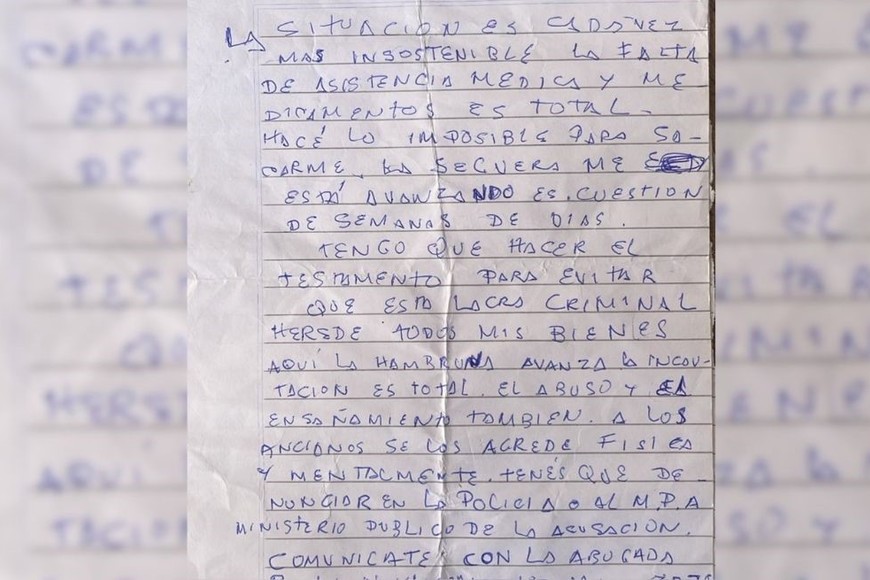 LA SITUACION ES CADA VEZ
MAS INSOSTENIBLE LA FALTA
DE ASISTENCIA MEDICA Y ME
DICAMENTOS ES TOTAL-
HACÉ LO IMPOSIBLE PARA SA-
CARME. LA SEGUERA ME
ESTÁ AVANZANDO ES CUESTION
DE SEMANAS DE DIAS.
TENGO QUE HACER EL
TESTAMENTO PARA EVITAR
QUE ESTA LACRA CRIMINAL
HEREDE TODOS MIS BIENES
AQUÍ LA HAMBRUNA AVANZA LA INCOU-
TACION ES TOTAL. EL ABUSO Y EL
ENSAÑAMIENTO TAMBIEN. A LOS
ANCIANOS SE LOS AGREDE FISICA
Y MENTALMENTE. TENÉS QUE DE-
NUNCIAR EN LA POLICIA O AL M.P.A
MINISTERIO PUBLICO DE LA ACUSACION.
COMUNICATE CON LA ABOGADA